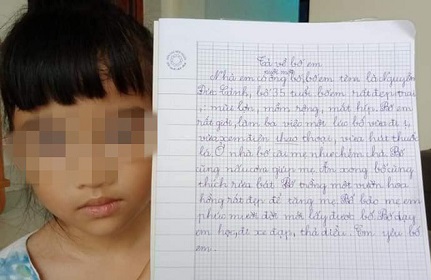 Tả về bố em
Nhà em có ông bố, bố em tên là Nguyễn
ngớ ngẩn
Đức Cảnh, bố 35 tuổi bố em rất đẹp trai
mũi lớn, mồm rộng, mắt híp. Bố em
rất giỏi, làm ba việc một lúc bố vừa đi ị
vừa xem điện thoại thoại, vừa hút thuốc
lá. Ở nhà bố cãi mẹ như chém chả. Bố
cũng nấu cơm giúp mẹ. Ăn xong bố cũng
thích rửa bát. Bố trồng một vườn hoa
hồng rất đẹp để tặng mẹ. Bố bảo mẹ em
phúc mười đời mới lấy được bố. Bố dạy
em học, đi xe đạp, thả diều. Em yêu bố
em.